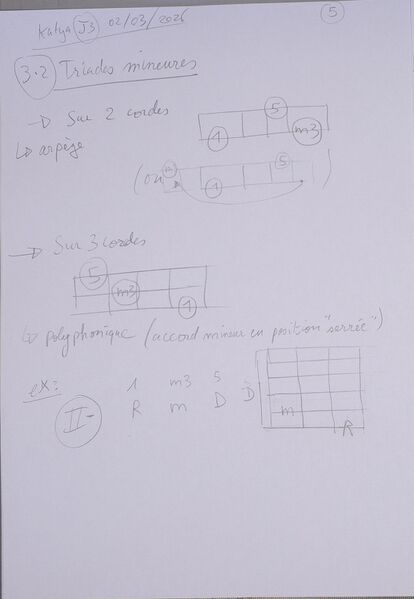 Katya J3 02/03/2026
5
3.2 Triades mineures
→ Sur 2 cordes
5
1
m3
↳ arpège
(ou
5
1
)
→ Sur 3 cordes
5
m3
1
↳ polyphonique (accord mineur en position "serrée")
ex:
1 m3 5
II- R m D
D
m
R